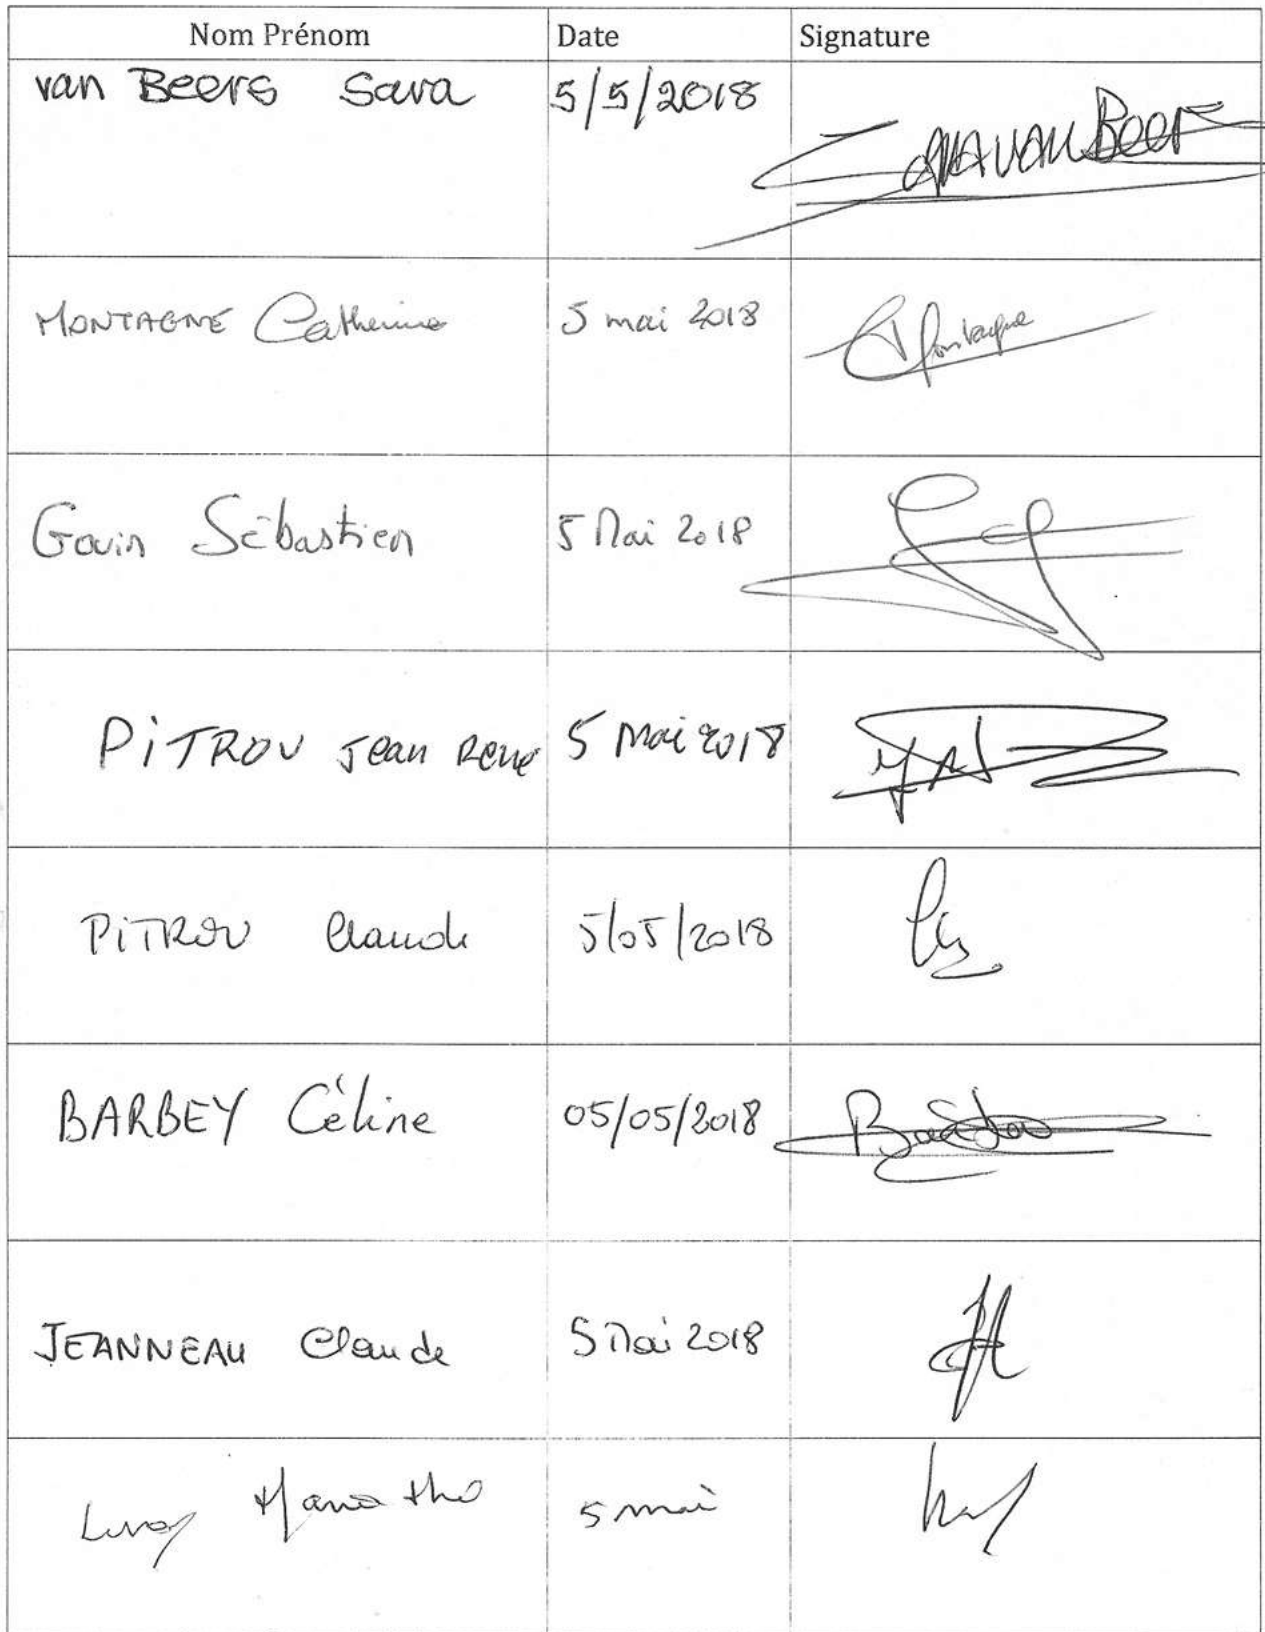 Nom Prénom Date Signature
van Beers Sara 5/5/2018 Sara van Beers
MONTAGNE Catherine 5 mai 2018 C Montagne
Gouin Sébastien 5 Mai 2018
PiTROU Jean René 5 Mai 2018
PiTROU Claude 5/05/2018
BARBEY Céline 05/05/2018
JEANNEAU Claude 5 Mai 2018
5 mai